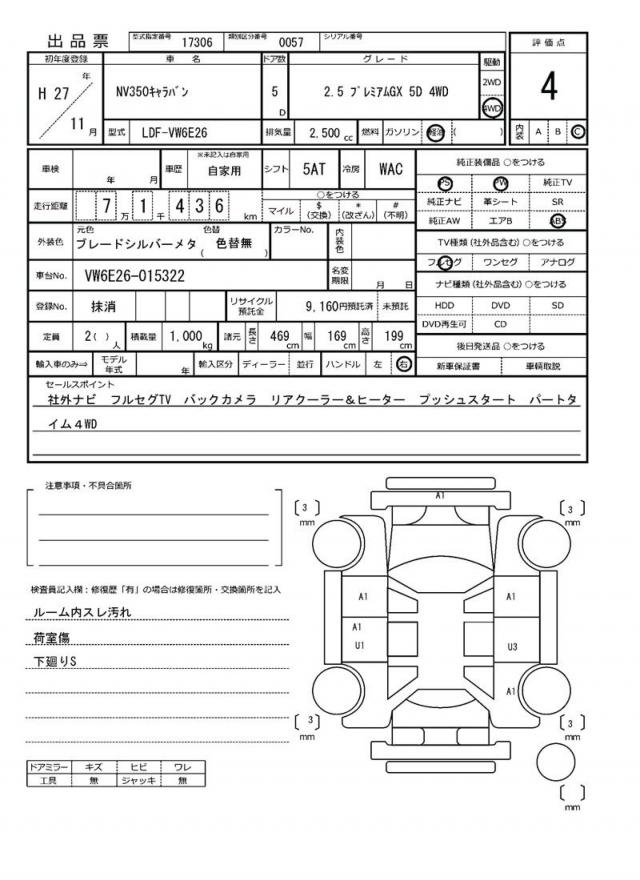 出品票 型式指定番号 17306 類別区分番号 0057 シリアル番号
評価点
4
内装 A B C
初年度登録 車名 ドア数 グレード 駆動
H 27 年 11 月
NV350キャラバン 5 D 2.5 プレミアムGX 5D 4WD
2WD
4WD
型式 LDF-VW6E26 排気量 2,500 cc 燃料 ガソリン 軽油 ( )
車検 年 月 車歴 ※未記入は自家用 自家用 シフト 5AT 冷房 WAC
走行距離 7 万 1 千 4 3 6 km
○をつける
マイル $(交換) *(改ざん) #(不明)
外装色 元色 ブレードシルバーメタ 色替 ( 色替無 ) カラーNo. 内装色
車台No. VW6E26-015322 名変期限 月 日
登録No. 抹消 リサイクル預託金 9,160円預託済 未預託
定員 2( )人 積載量 1,000 kg 諸元 長さ 469 cm 幅 169 cm 高さ 199 cm
輸入車のみ⇒ モデル年式 年 輸入区分 ディーラー 並行 ハンドル 左 右
純正装備品 ○をつける
PS PW 純正TV
純正ナビ 革シート SR
純正AW エアB ABS
TV種類(社外品含む)○をつける
フルセグ ワンセグ アナログ
ナビ種類(社外品含む)○をつける
HDD DVD SD
DVD再生可 CD
後日発送品 ○をつける
新車保証書 車輌取説
セールスポイント
社外ナビ フルセグTV バックカメラ リアクーラー&ヒーター プッシュスタート パートタ
イム4WD
注意事項・不具合箇所
検査員記入欄:修復歴「有」の場合は修復箇所・交換箇所を記入
ルーム内スレ汚れ
荷室傷
下廻りS
ドアミラー キズ ヒビ ワレ
工具 無 ジャッキ 無
A1
[ 3 ] mm
[ 3 ] mm
A1
A1
A1
U1
U3
A1
[ 3 ] mm
[ 3 ] mm
[ ] mm